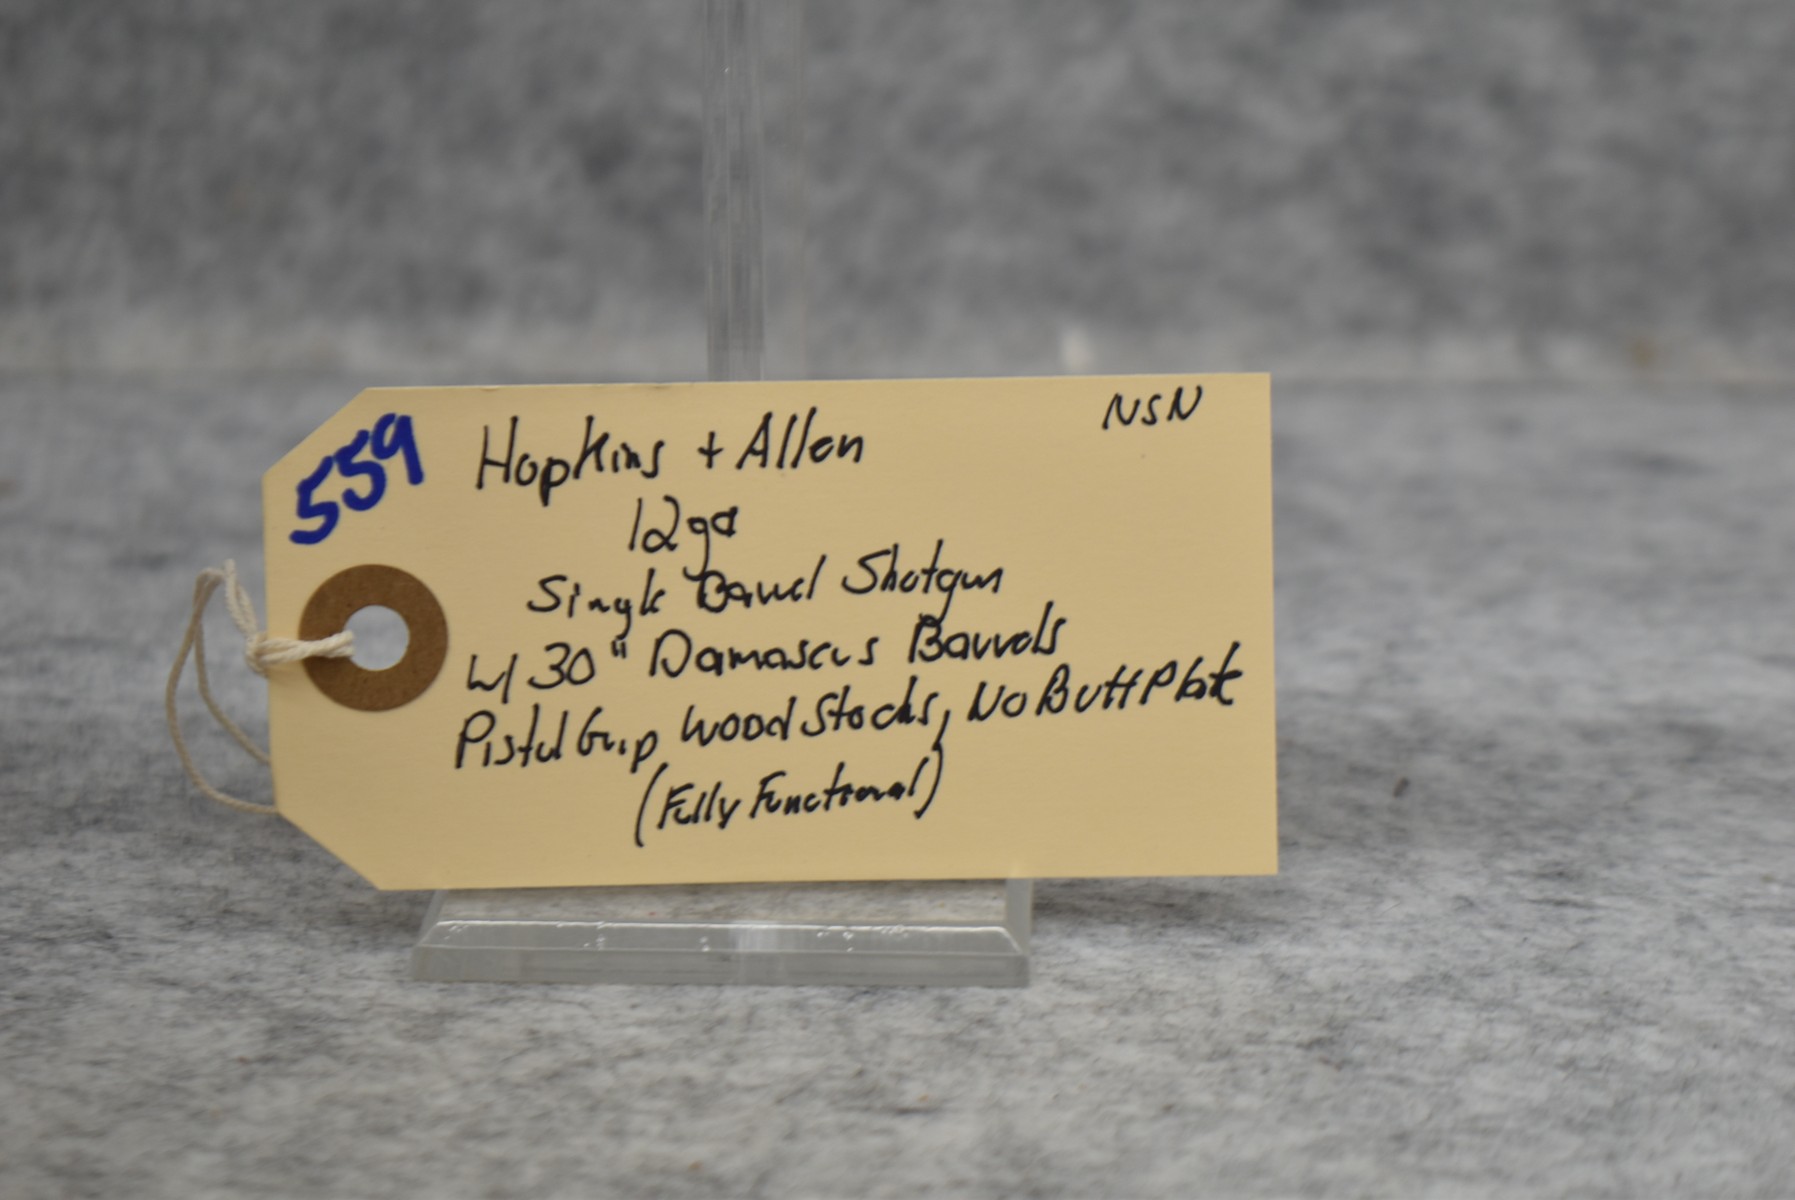 559
Hopkins + Allen
NSN
12ga
Single Barrel Shotgun
W/ 30" Damascus Barrels
Pistol Grip Wood Stocks, No Butt Plate
(Fully Functional)